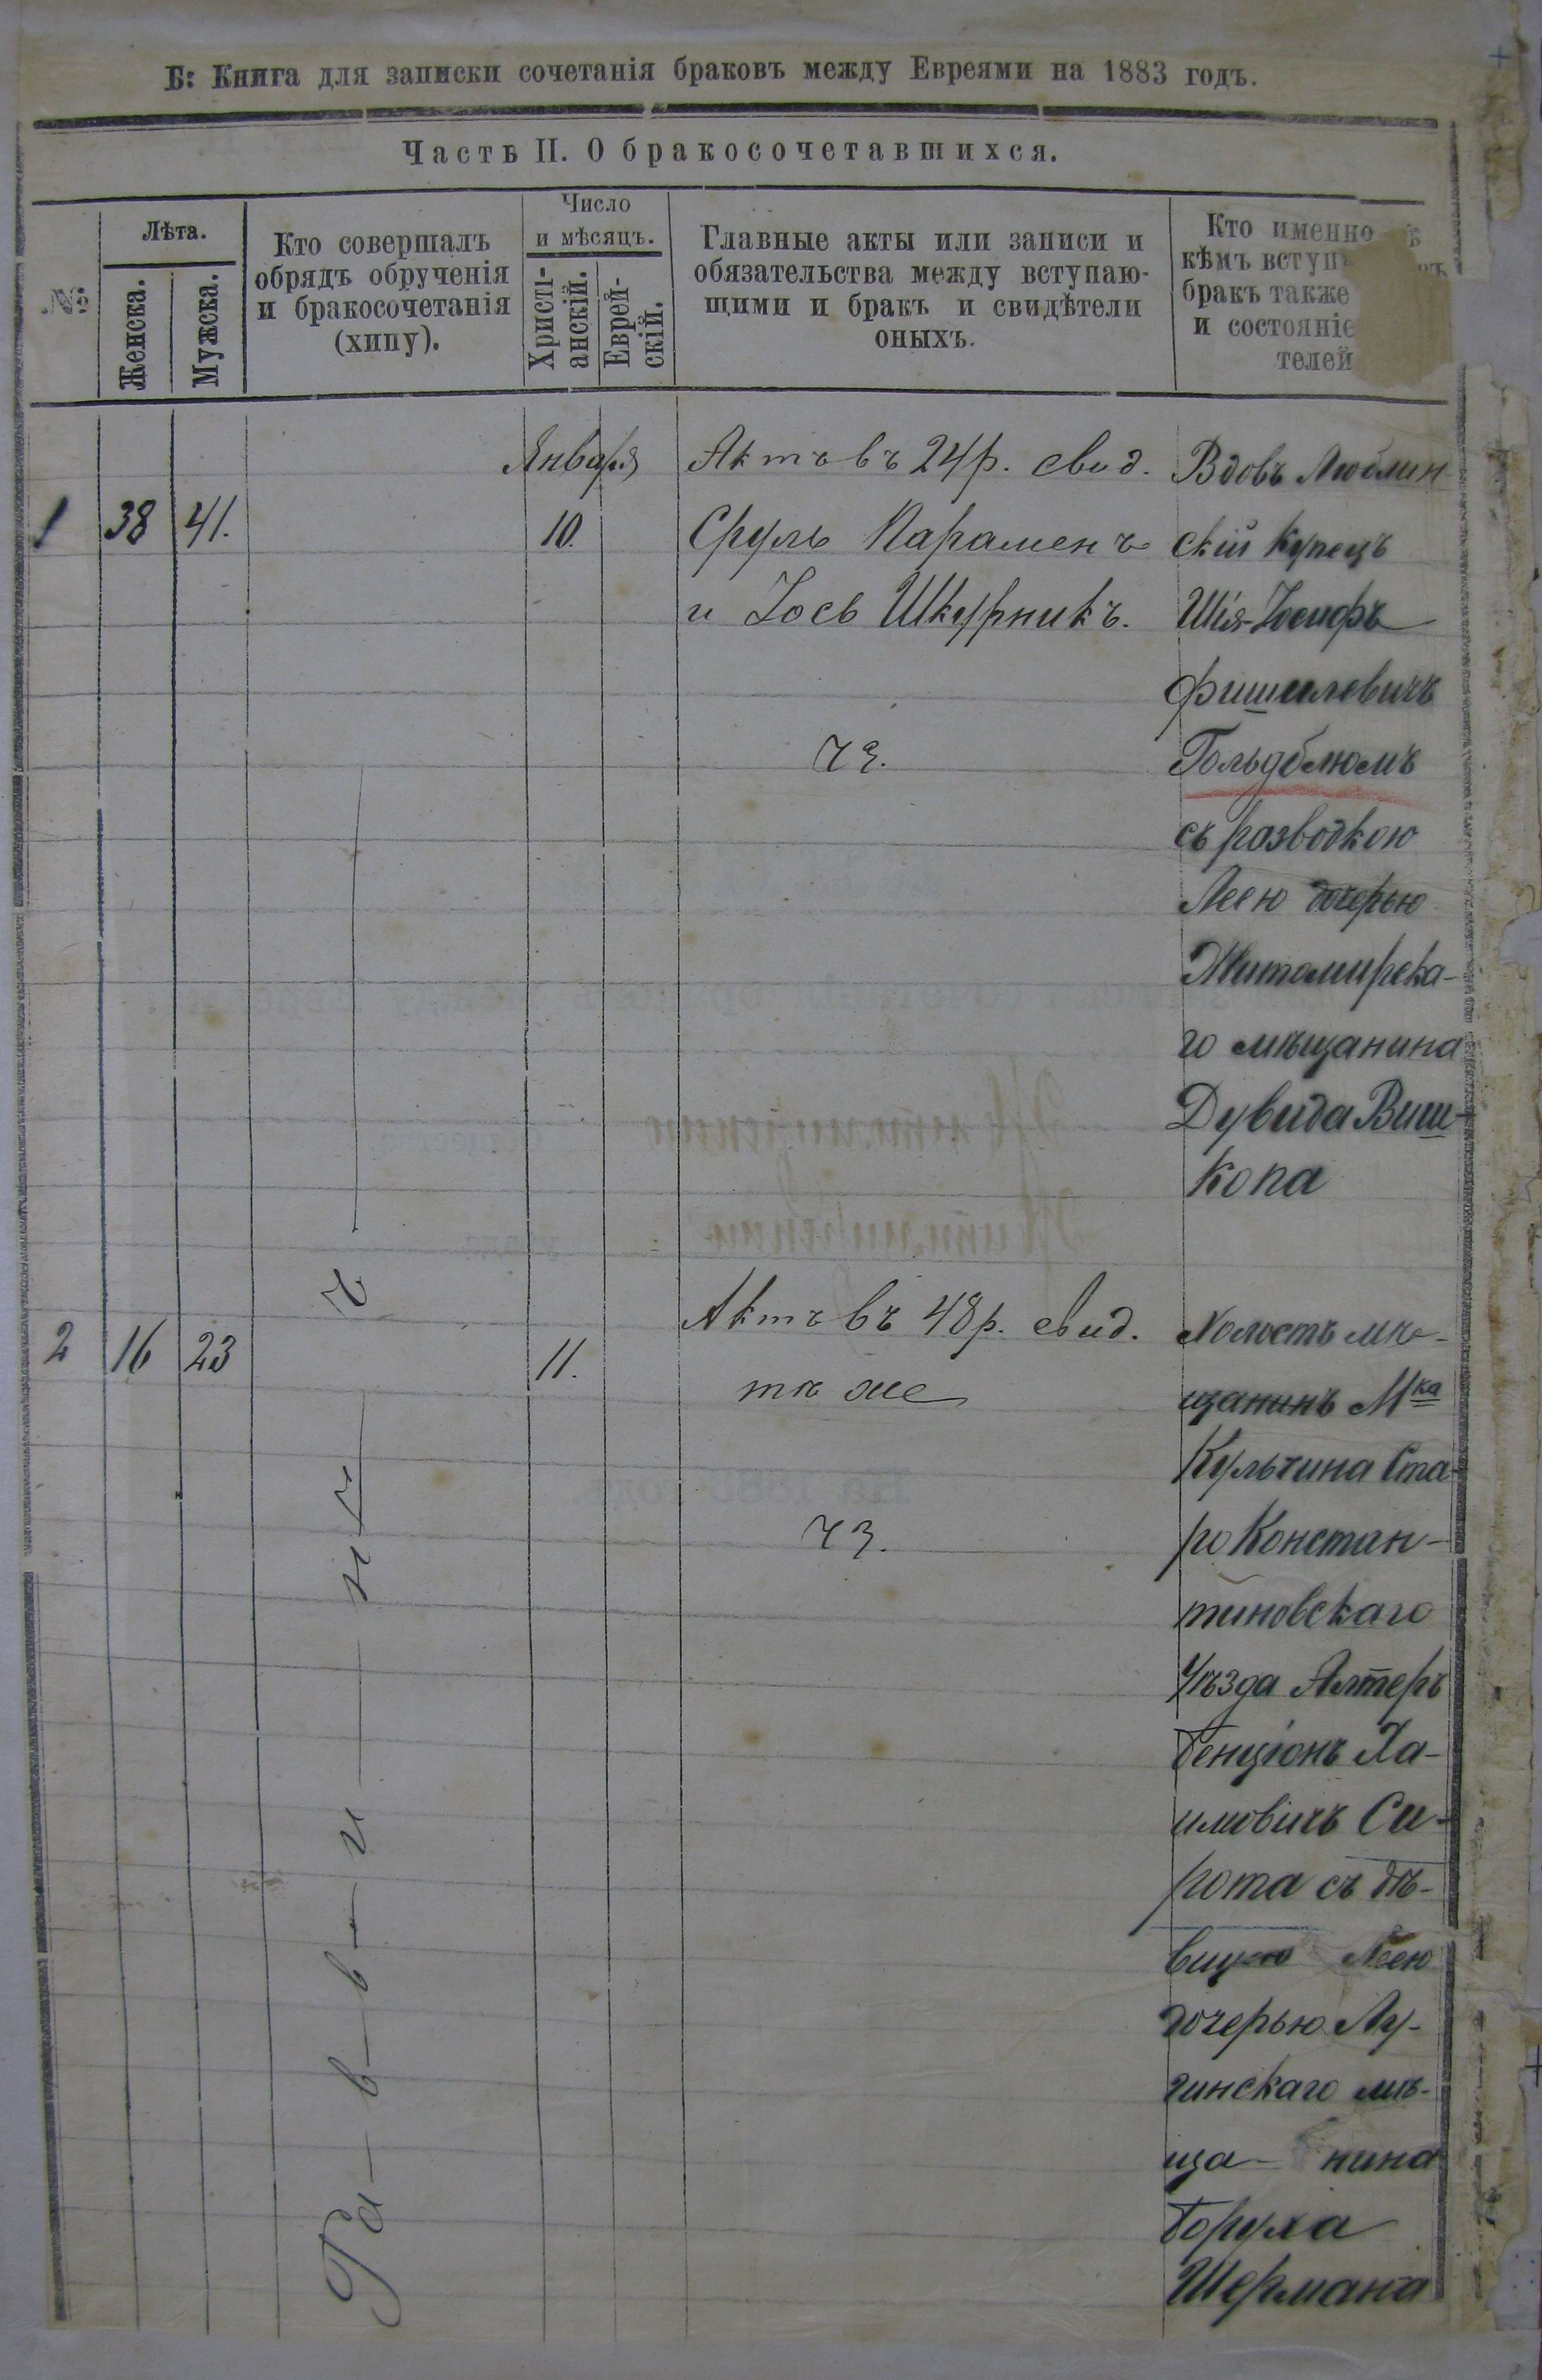 Б: Книга для записки сочетанія браковъ между Евреями на 1883 годъ.
Часть II. О бракосочетавшихся.
№
Лѣта.
Женска.
Мужска.
Кто совершалъ
обрядъ обрученія
и бракосочетанія
(хипу).
Число
и мѣсяцъ.
Христі-
анскій.
Еврей-
скій.
Главные акты или записи и
обязательства между вступаю-
щими и бракъ и свидѣтели
оныхъ.
Кто именно
кѣмъ
бракъ также
и состояніе
телей
Января
1 38 41. 10.
Актъ въ 24 р. свид.
Сруль Параменъ
и Іось Шкурникъ.
Вдовъ Люблин-
скій купецъ
Шія-Іосифъ
Фишилевичъ
Гольдблюмъ
съ разводкою
Леею дочерью
Житомирска-
го мѣщанина
Дувида Виш-
копа
2 16 23 11.
Актъ въ 48 р. свид.
тѣ же
Холостъ мѣ-
щанинъ Мка
Кульчина Ста-
ро Констан-
тиновскаго
Уѣзда Алтеръ
Бенціонъ Ха-
имовичъ Си-
рота съ дѣ-
вицею Леею
дочерью Лу-
гинскаго мѣ-
ща- нина
Боруха
Шермана
Ра-в-в-и-н-ъ